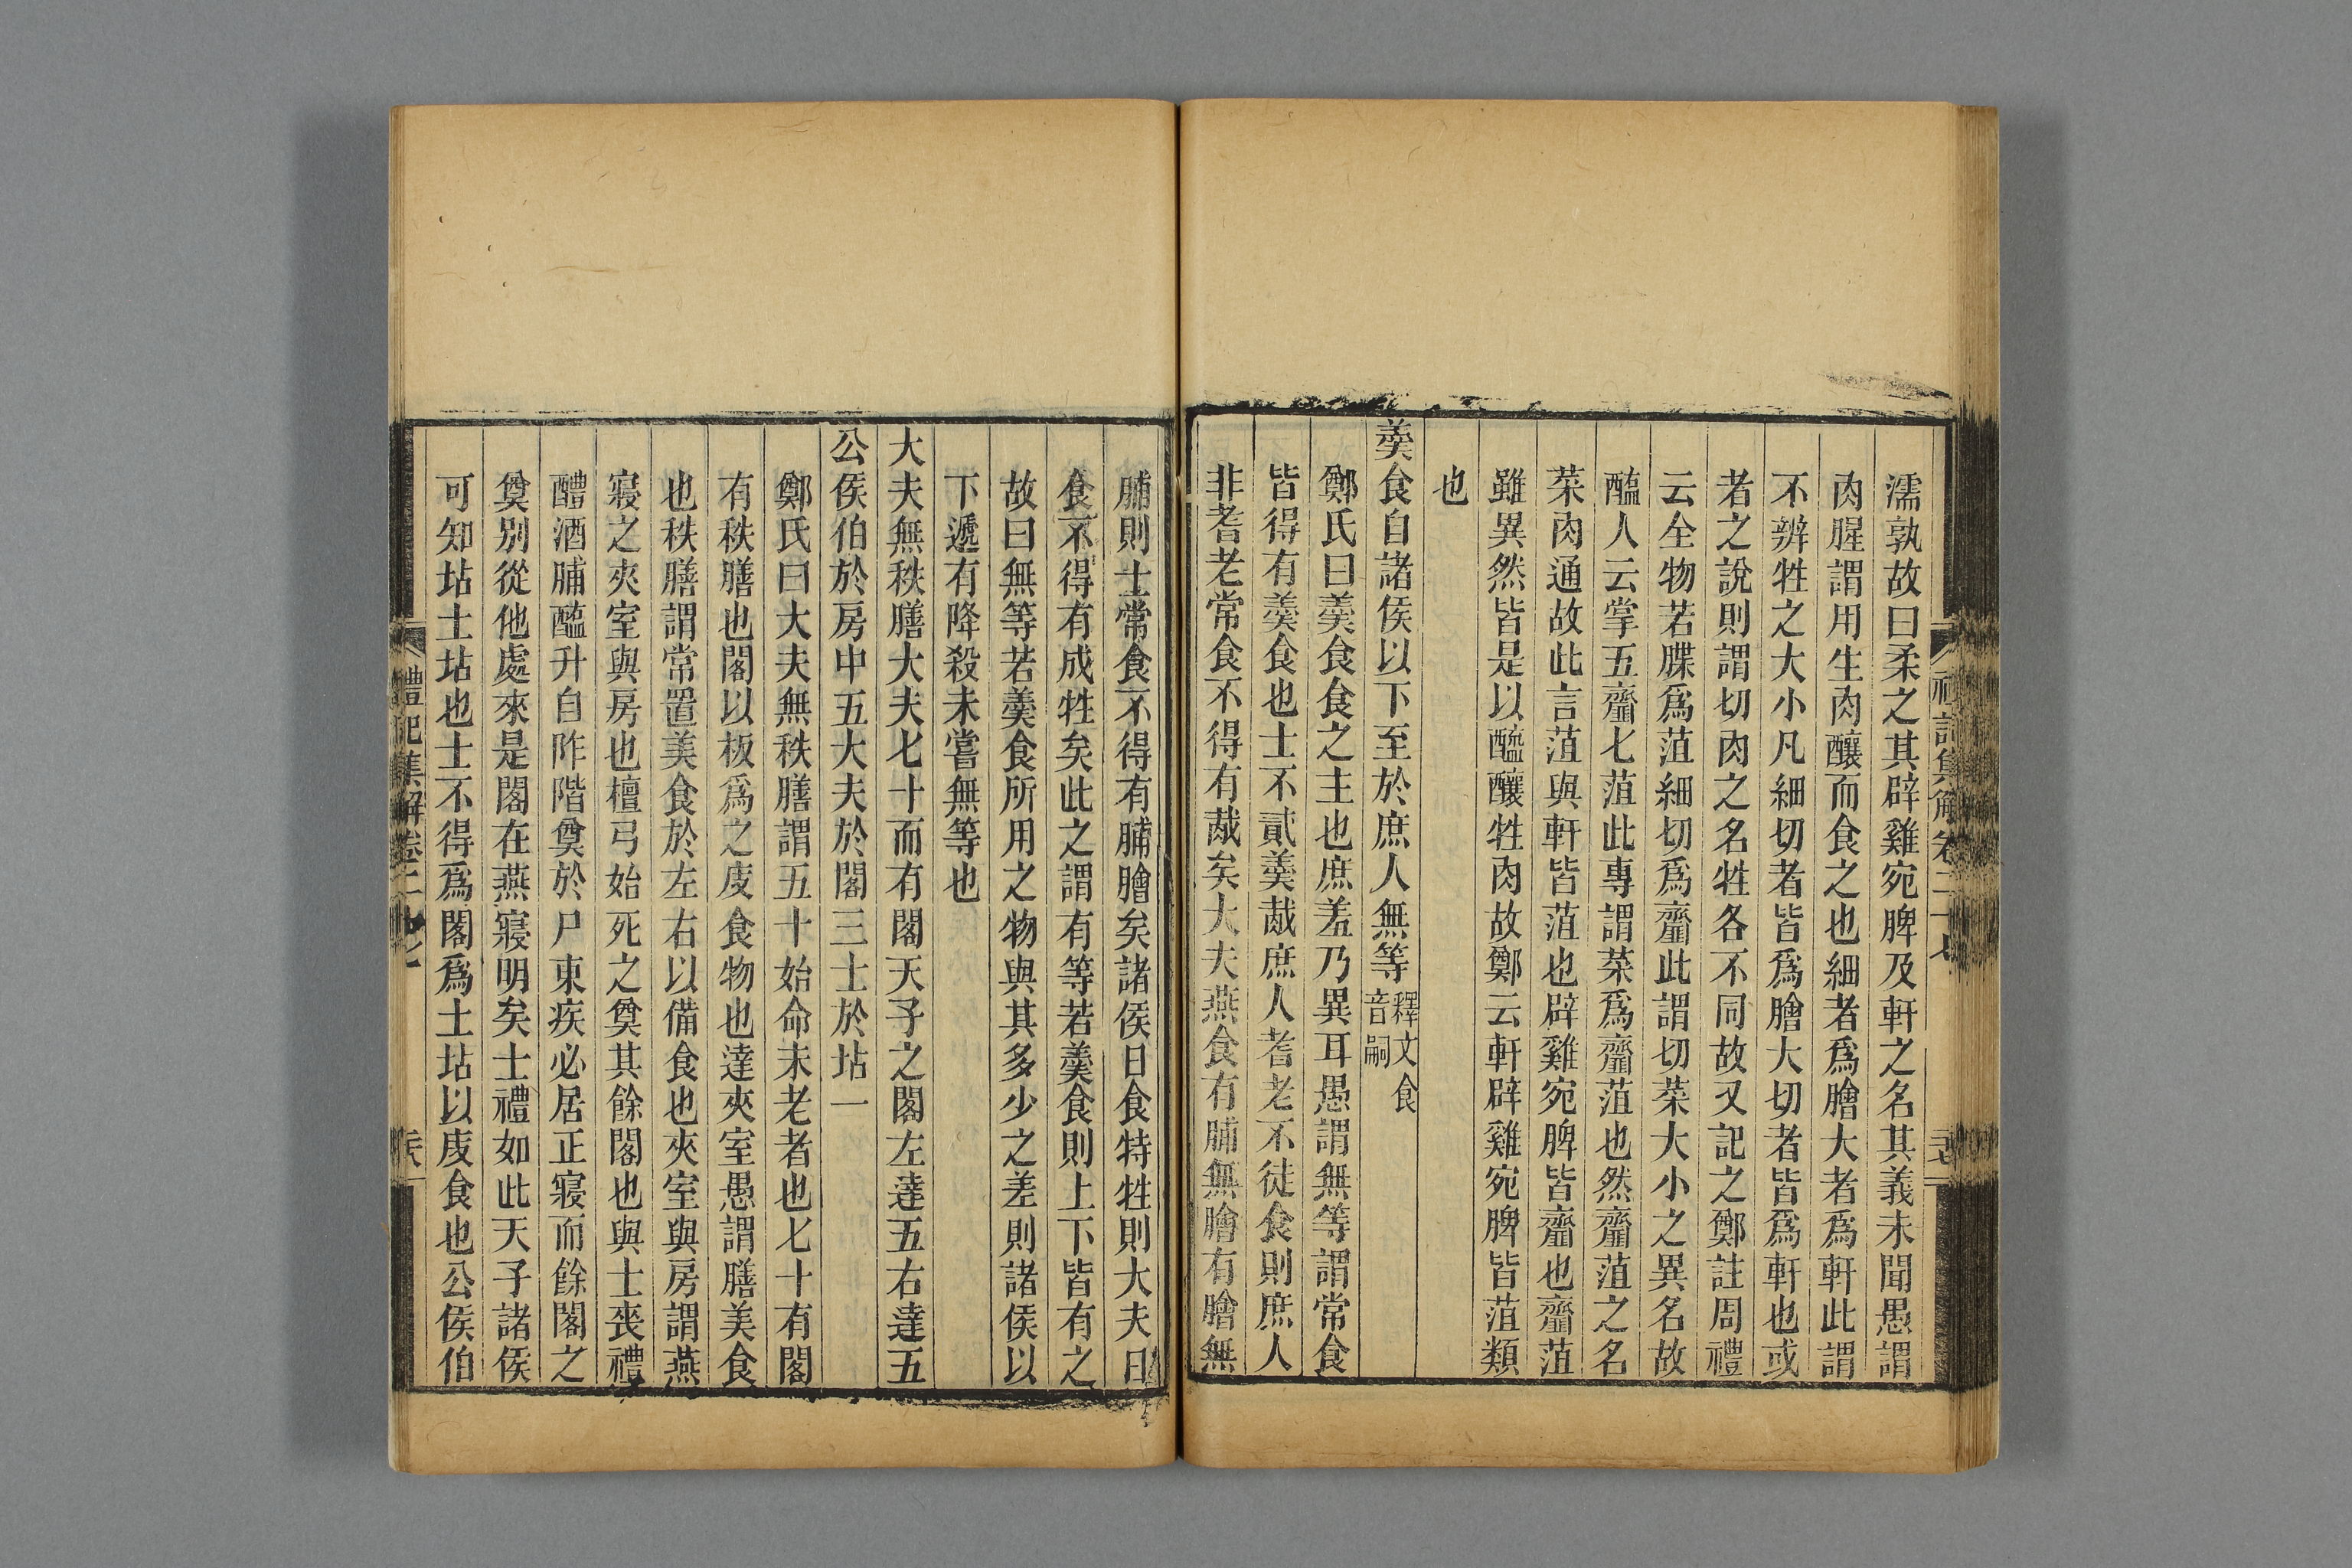 濡孰故曰柔之其辟雞宛脾及軒之名其義未聞愚謂
肉腥謂用生肉釀而食之也細者爲膾大者爲軒此謂
不辨牲之大小凡細切者皆爲膾大切者皆爲軒也或
者之說則謂切肉之名牲各不同故又記之鄭註周禮
云全物若䐑爲菹細切爲齏此謂切菜大小之異名故
醢人云掌五齏七菹此專謂菜爲齏菹也然齏菹之名
菜肉通故此言菹與軒皆菹也辟雞宛脾皆齏也齏菹
雖異然皆是以醯釀牲肉故鄭云軒辟雞宛脾皆菹類
也
羹食自諸侯以下至於庶人無等釋文食
音嗣
鄭氏曰羹食食之主也庶羞乃異耳愚謂無等謂常食
皆得有羹食也士不貳羹胾庶人耆老不徒食則庶人
非耆老常食不得有胾矣大夫燕食有脯無膾有膾無
脯則士常食不得有脯膾矣諸侯日食特牲則大夫日
食不得有成牲矣此之謂有等若羹食則上下皆有之
故曰無等若羹食所用之物與其多少之差則諸侯以
下遞有降殺未嘗無等也
大夫無秩膳大夫七十而有閣天子之閣左達五右達五
公侯伯於房中五大夫於閣三士於坫一
鄭氏曰大夫無秩膳謂五十始命未老者也七十有閣
有秩膳也閣以板爲之庋食物也達夾室愚謂膳美食
也秩膳謂常置美食於左右以備食也夾室與房謂燕
寢之夾室與房也檀弓始死之奠其餘閣也與士喪禮
醴酒脯醢升自阼階奠於尸東疾必居正寢而餘閣之
奠別從他處來是閣在燕寢明矣士禮如此天子諸侯
可知坫土坫也士不得爲閣爲土坫以庋食也公侯伯
禮記集解卷二十七